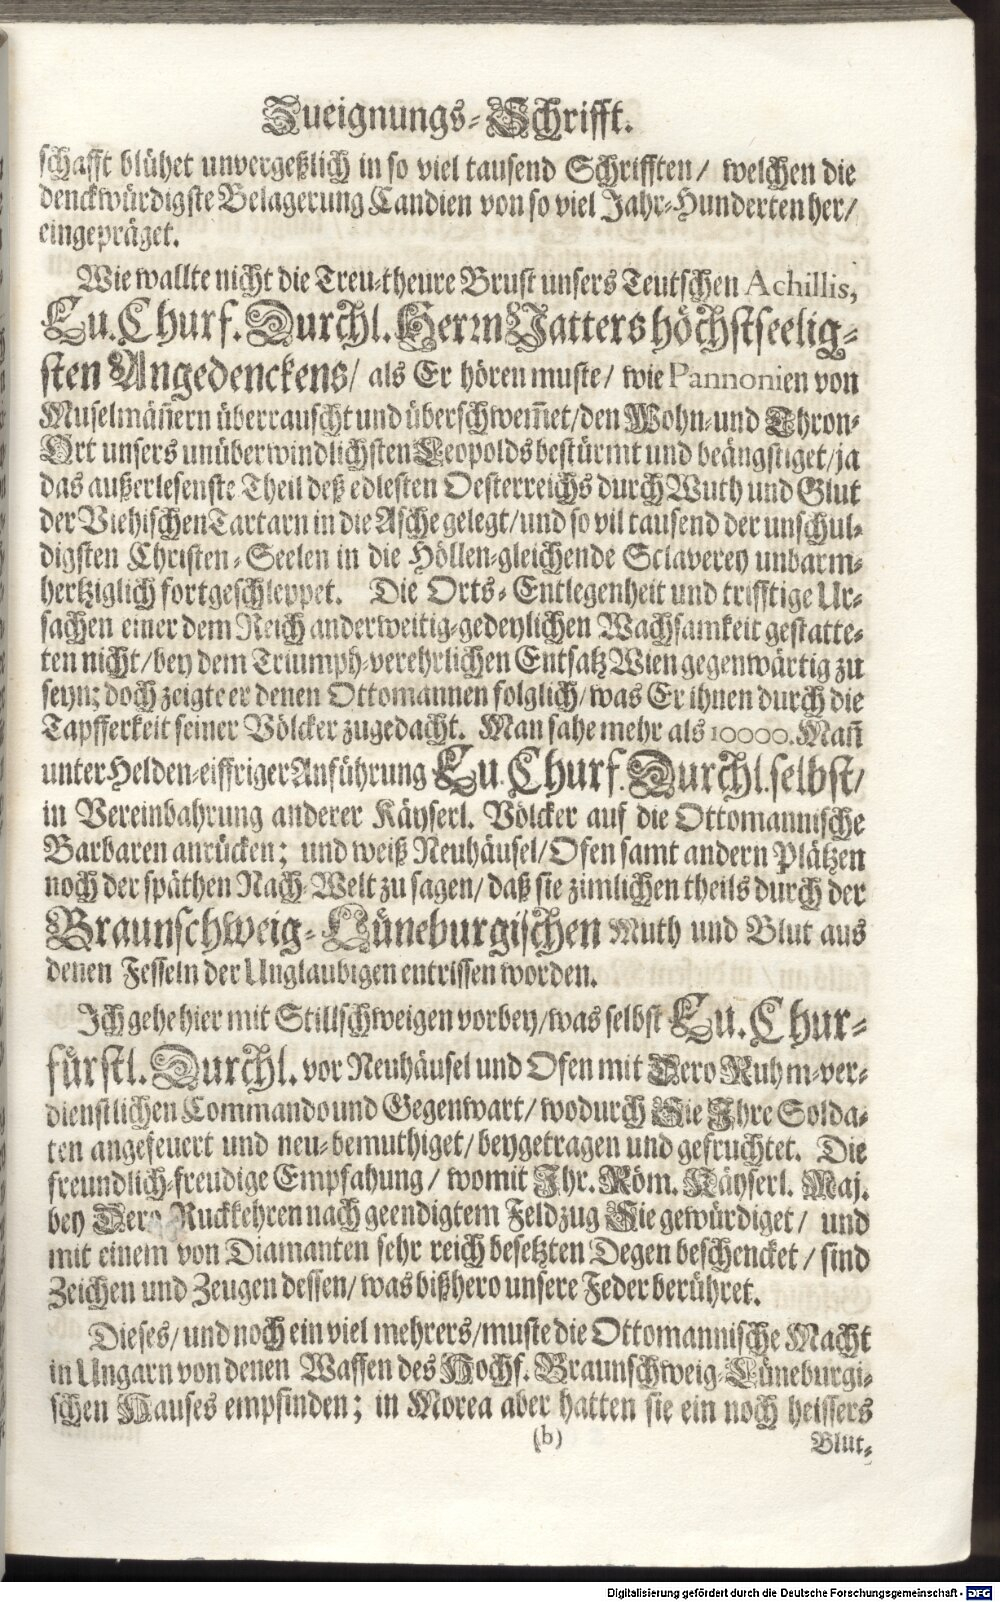 Zueignungs-Schrifft.
schafft blühet unvergeßlich in so viel tausend Schrifften/ welchen die
denckwürdigste Belagerung Candien von so viel Jahr-Hunderten her/
eingepräget.
Wie wallte nicht die Treu-theure Brust unsers Teutschen Achillis,
Eu. Churf. Durchl. Herrn Vatters höchstseelig-
sten Angedenckens/ als Er hören muste/ wie Pannonien von
Muselmäñern überrauscht und überschwem̃et/ den Wohn- und Thron-
Ort unsers unüberwindlichsten Leopolds bestürmt und beängstiget/ ja
das außerlesenste Theil deß edlesten Oesterreichs durch Wuth und Glut
der Viehischen Tartarn in die Asche gelegt/ und so vil tausend der unschul-
digsten Christen-Seelen in die Höllen-gleichende Sclaverey unbarm-
hertziglich fortgeschleppet. Die Orts-Entlegenheit und trifftige Ur-
sachen einer dem Reich anderweitig-gedeylichen Wachsamkeit gestatte-
ten nicht/ bey dem Triumph-verehrlichen Entsatz Wien gegenwärtig zu
seyn; doch zeigte er denen Ottomannen folglich/ was Er ihnen durch die
Tapfferkeit seiner Völcker zugedacht. Man sahe mehr als 10000. Mañ
unter Helden-eiffriger Anführung Eu. Churf. Durchl. selbst/
in Vereinbahrung anderer Käyserl. Völcker auf die Ottomannische
Barbaren anrücken; und weiß Neuhäusel/ Ofen samt andern Plätzen
noch der späthen Nach-Welt zu sagen/ daß sie zimlichen theils durch der
Braunschweig-Lüneburgischen Muth und Blut aus
denen Fesseln der Unglaubigen entrissen worden.
Ich gehe hier mit Stillschweigen vorbey/ was selbst Eu. Chur-
fürstl. Durchl. vor Neuhäusel und Ofen mit Dero Ruhm-ver-
dienstlichen Commando und Gegenwart/ wodurch Sie Ihre Solda-
ten angefeuert und neu-bemuthiget/ beygetragen und gefruchtet. Die
freundlich-freudige Empfahung/ womit Ihr. Röm. Käyserl. Maj.
bey Dero Ruckkehren nach geendigtem Feldzug Sie gewürdiget/ und
mit einem von Diamanten sehr reich besetzten Degen beschencket/ sind
Zeichen und Zeugen dessen/ was bißhero unsere Feder berühret.
Dieses/ und noch ein viel mehrers/ muste die Ottomannische Macht
in Ungarn von denen Waffen des Hochf. Braunschweig-Lüneburgi-
schen Hauses empfinden; in Morea aber hatten sie ein noch heissers
(b) Blut-
Digitalisierung gefördert durch die Deutsche Forschungsgemeinschaft - DFG